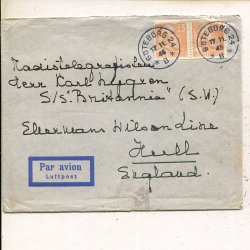 GÖTEBORG 24
17 11
46
* B *
GÖTEBORG 24
17 11
46
* B *
Radiotelegrafisten
Herr Karl
S/S "Britannia" (S.W.)
Ellermans Wilson Line
Hull
England.
Par avion
Luftpost